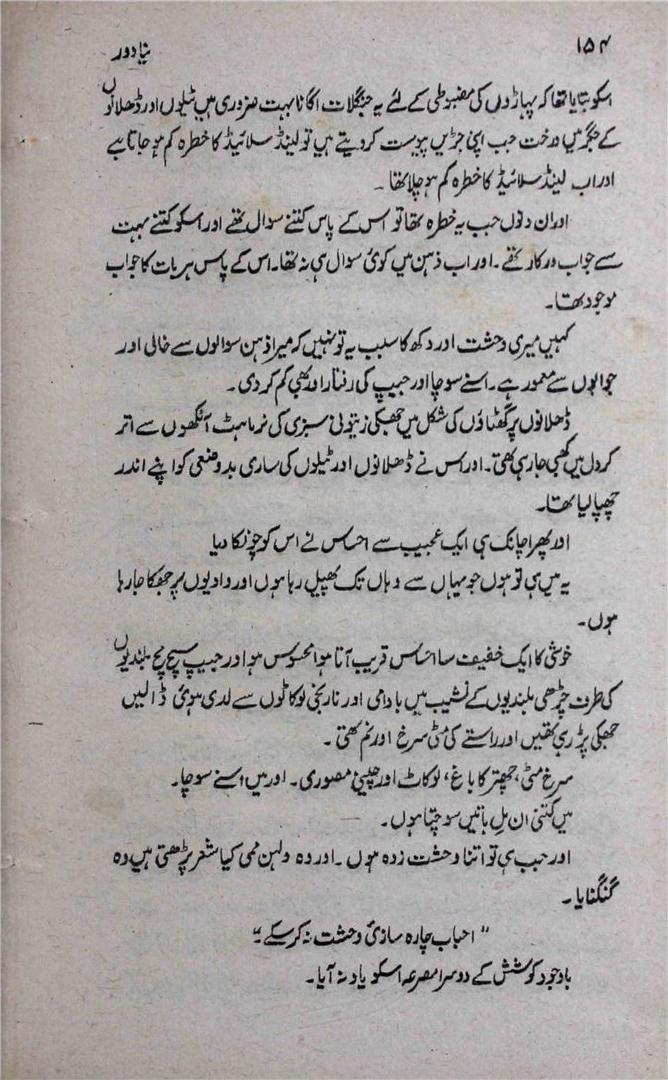 ۱۵۴
نیا دور
اسکو بتایا تھا کہ پہاڑوں کی مضبوطی کے لئے یہ جنگلات اگانا بہت ضروری ہیں ٹیلوں اور ڈھلانوں
کے جگر میں درخت جب اپنی جڑیں پیوست کر دیتے ہیں تو لینڈ سلائیڈ کا خطرہ کم ہو جاتا ہے
اور اب لینڈ سلائیڈ کا خطرہ کم ہو چلا تھا ۔
اور ان دنوں جب یہ خطرہ تھا تو اس کے پاس کتنے سوال تھے اور اسکو کتنے بہت
سے جواب درکار تھے ۔ اور اب ذہن میں کوئی سوال ہی نہ تھا۔ اس کے پاس ہر بات کا جواب
موجود تھا۔
کہیں میری وحشت اور دکھ کا سبب یہ تو نہیں کہ میرا ذہن سوالوں سے خالی اور
جوابوں سے معمور ہے۔ اسنے سوچا اور جیپ کی رفتار اور بھی کم کر دی۔
ڈھلانوں پر گھٹاؤں کی شکل میں جھکی زیتونی سبزی کی نرماہٹ آنکھوں سے اتر
کر دل میں کھبی جا رہی تھی۔ اور اس نے ڈھلانوں اور ٹیلوں کی ساری بد وضعی کو اپنے اندر
چھپا لیا تھا۔
اور پھر اچانک ہی ایک عجیب سے احساس نے اس کو چونکا دیا
یہ میں ہی تو ہوں جو یہاں سے وہاں تک پھیل رہا ہوں اور وادیوں پر جھکا جا رہا
ہوں۔
خوشی کا ایک خفیف سا احساس قریب آتا ہوا محسوس ہوا اور جیپ سچ مچ بلندیوں
کی طرف چڑھی بلندیوں کے نشیب میں بادامی اور نارنجی لوکاٹوں سے لدی ہوئی ڈالیں
جھکی پڑ رہی تھیں اور راستے کی مٹی سرخ اور نم تھی ۔
سرخ مٹی، چھتر کا باغ، لوکاٹ اور چینی مصوری۔ اور میں اسنے سوچا۔
میں کتنی ان مل باتیں سوچتا ہوں۔
اور جب ہی تو اتنا وحشت زدہ ہوں ۔ اور وہ دلہن ممی کیا شعر پڑھتی ہیں وہ
گنگنایا۔
" احباب چارہ سازئ وحشت نہ کر سکے ۔"
باوجود کوشش کے دوسرا مصرعہ اسکو یاد نہ آیا ۔